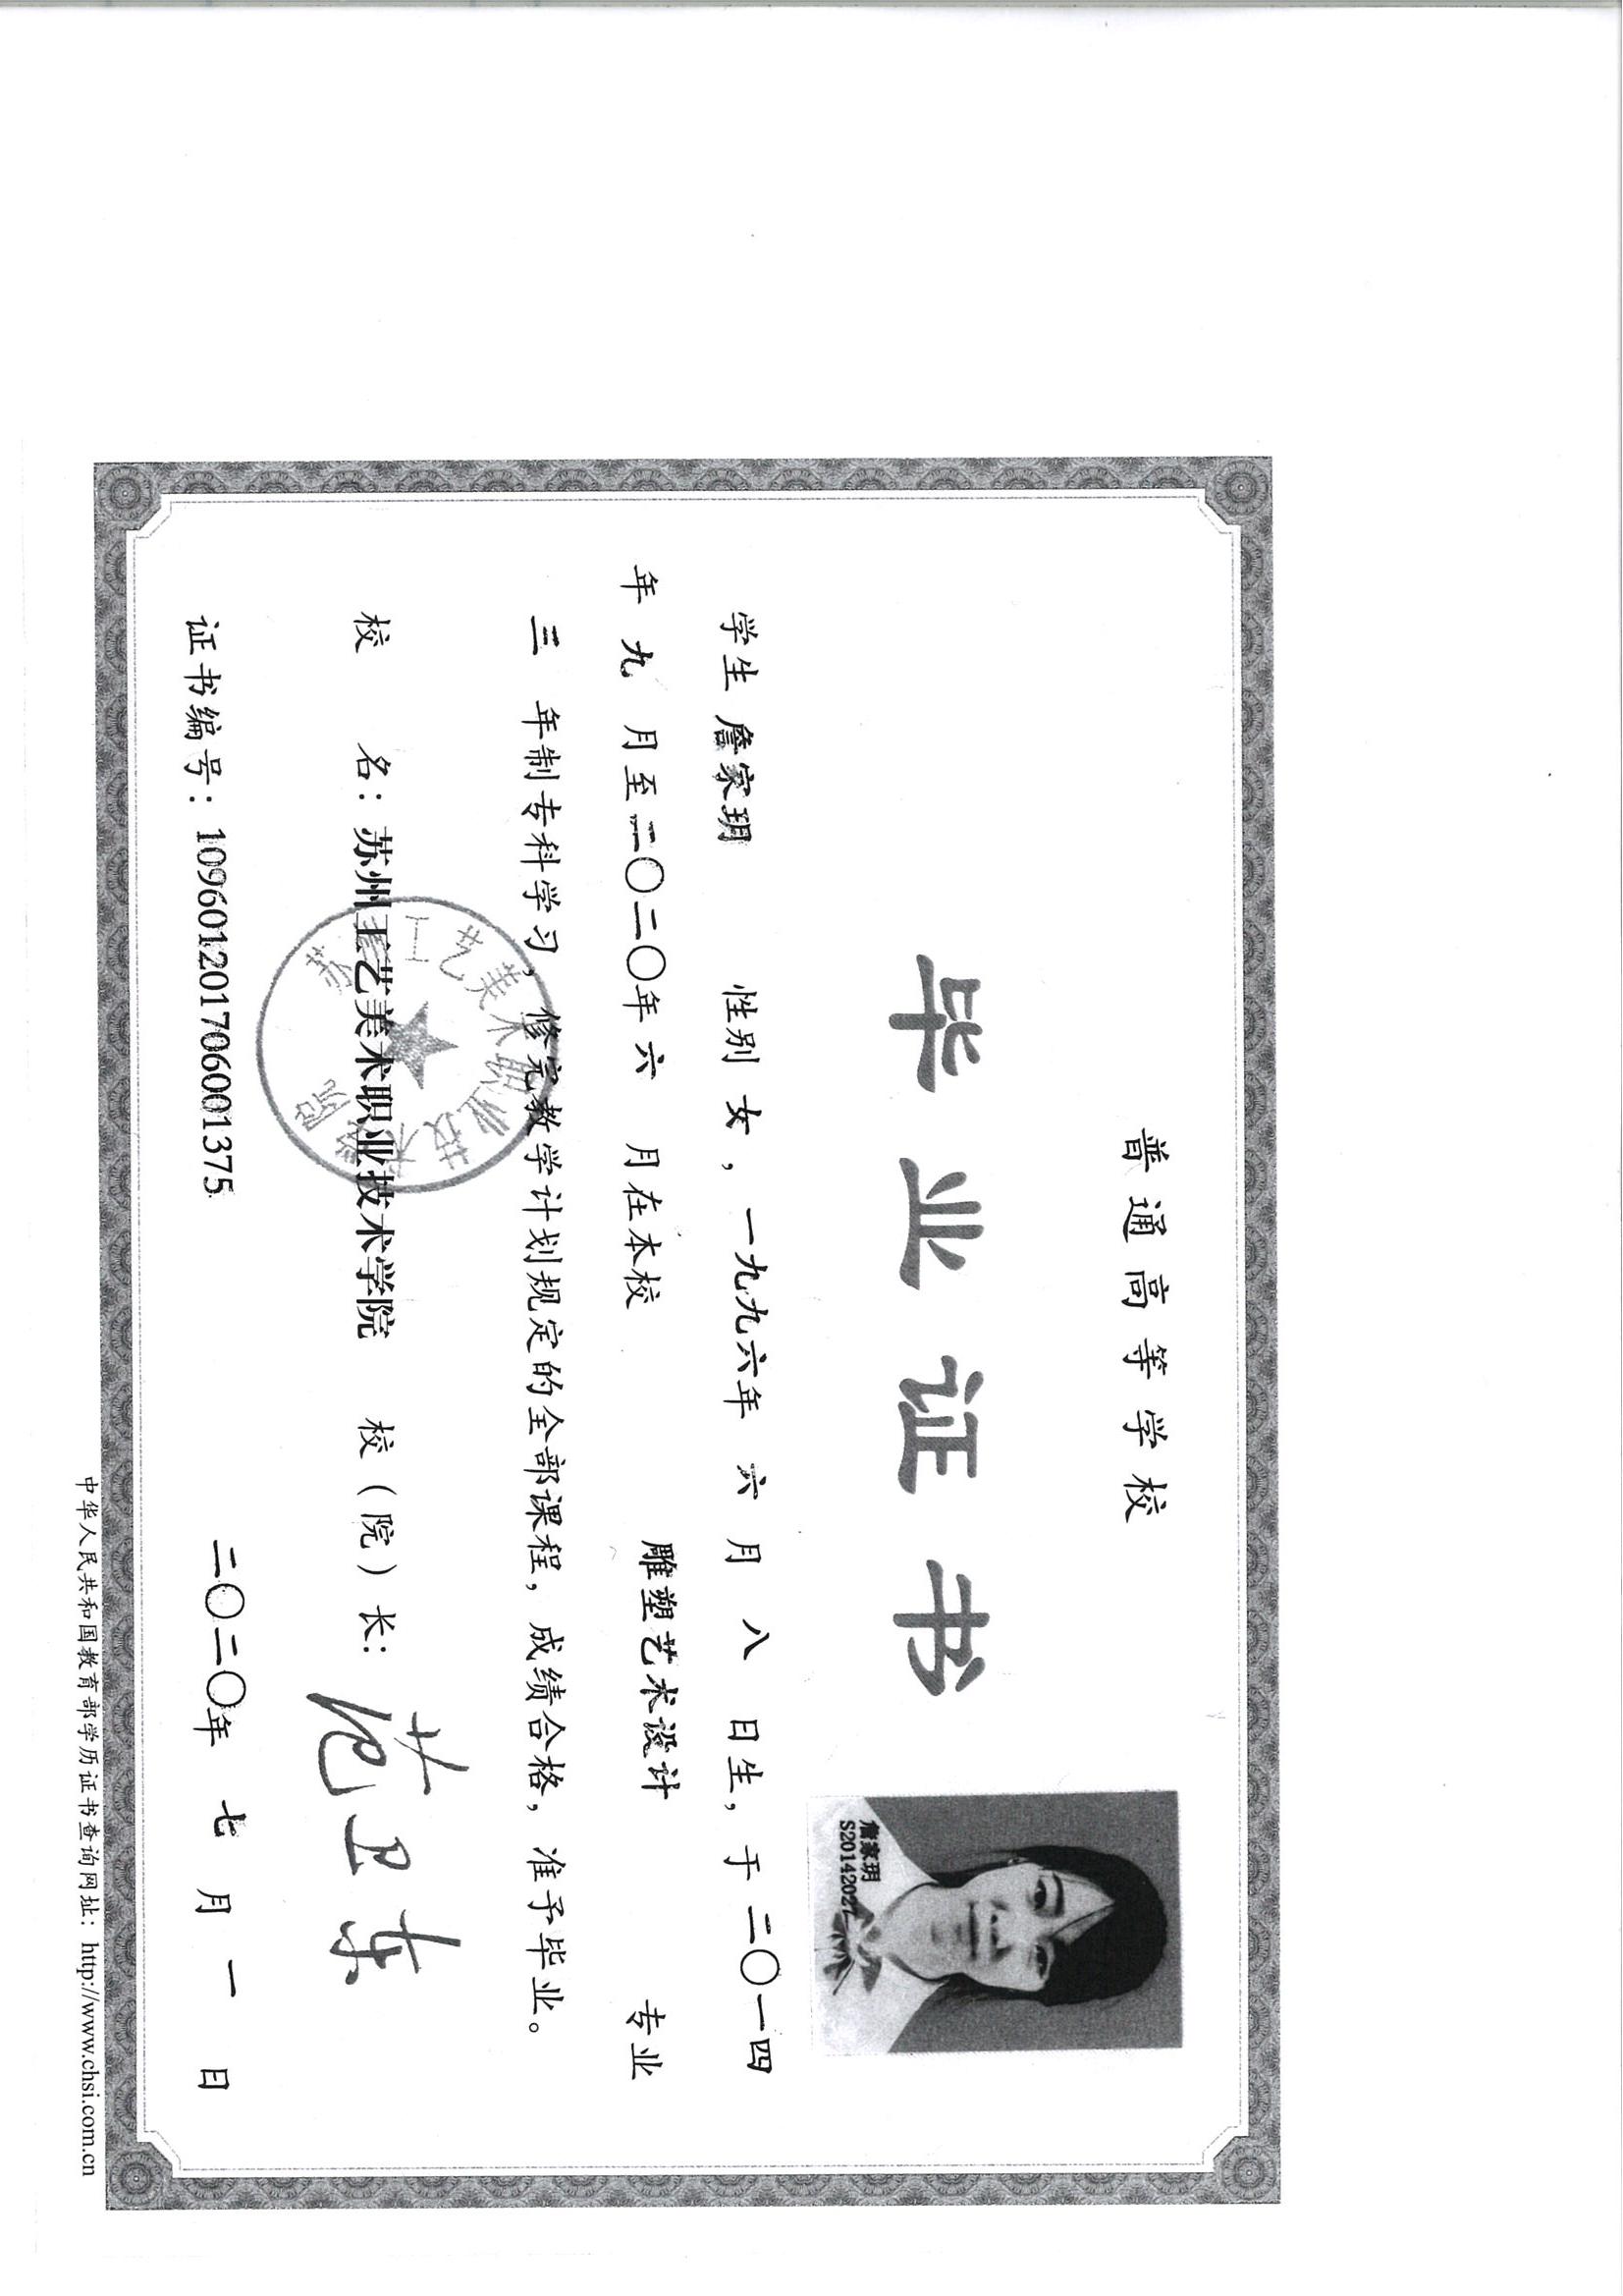 普通高等学校
毕业证书
詹家玥
S20142027
学生 詹家玥 性别 女，一九九六年 六 月 八 日生，于 二〇一四
年 九 月至二〇二〇年 六 月在本校 雕塑艺术设计 专业
三 年制专科学习，修完教学计划规定的全部课程，成绩合格，准予毕业。
校 名：苏州工艺美术职业技术学院 校（院）长：范卫东
苏州工艺美术职业技术学院
证书编号：109601201706001375 二〇二〇年 七 月 一 日
中华人民共和国教育部学历证书查询网址：http://www.chsi.com.cn